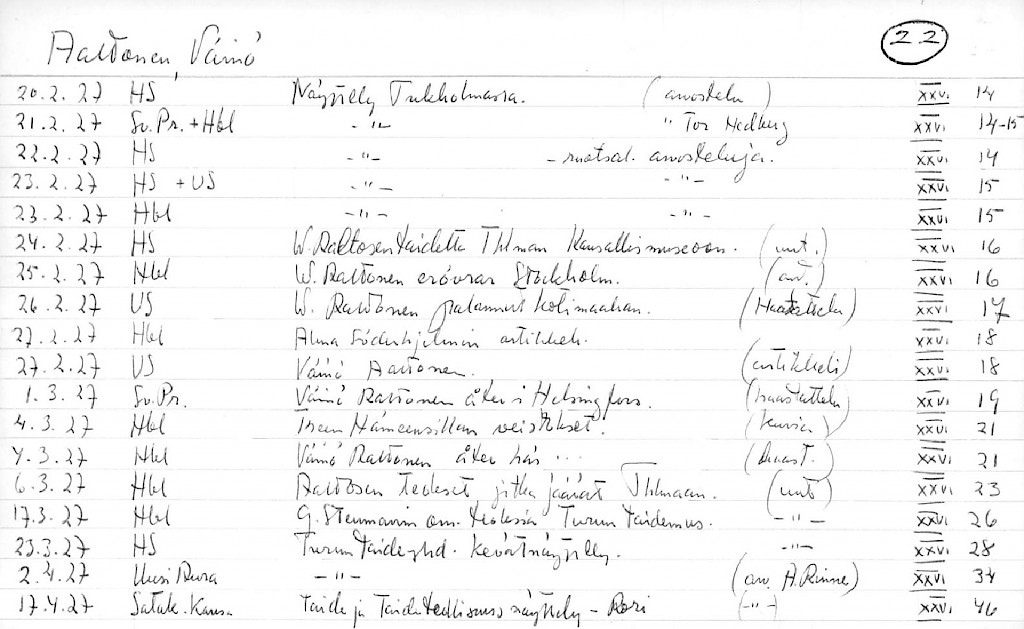 Aaltonen, Väinö 22
20.2.27 HS Näyttely Tukholmassa. (arvostelu) XXVI 14
21.2.27 Sv.Pr. + Hbl -"- " Tor Hedberg XXVI 14-15
22.2.27 HS -"- - ruotsal. arvosteluja. XXVI 14
23.2.27 HS + US -"- -"- XXVI 15
23.2.27 Hbl -"- -"- XXVI 15
24.2.27 HS W. Aaltosen taidetta Thlman Kansallismuseoon. (uut.) XXVI 16
25.2.27 Hbl W. Aaltonen erövrar Stockholm. (arv.) XXVI 16
26.2.27 US W. Aaltonen palannut kotimaahan. (Haastattelu) XXVI 17
27.2.27 Hbl Alma Söderhjelmin artikkeli. XXVI 18
27.2.27 US Väinö Aaltonen. (artikkeli) XXVI 18
1.3.27 Sv.Pr. Väinö Aaltonen åter i Helsingfors. (haastattelu) XXVI 19
4.3.27 Hbl Treen Hämeensillan veistokset. (kuvia) XXVI 21
4.3.27 Hbl Väinö Aaltonen åter här ... (haast.) XXVI 21
6.3.27 Hbl Aaltosen teokset, jotka jäävät Thlmaan. (uut.) XXVI 23
17.3.27 Hbl G. Stenmanin om. teoksia Turun taidemus. -"- XXVI 26
23.3.27 HS Turun taideyhd. kevätnäyttely. -"- XXVI 28
2.4.27 Uusi Aura -"- (arv. A. Rinne) XXVI 34
17.4.27 Satak. Kansa Taide ja Taideteollisuusnäyttely - Pori (-"-) XXVI 46